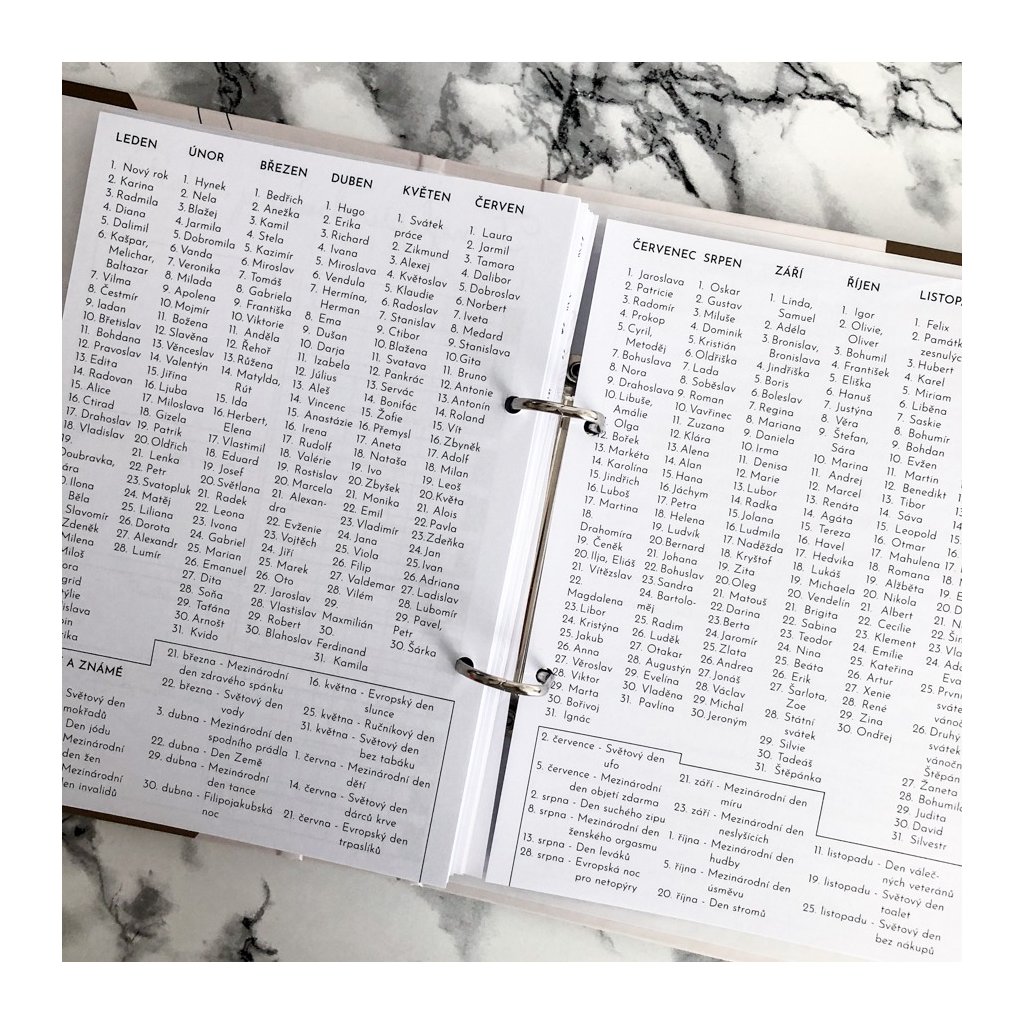 LEDEN
1. Nový rok
2. Karina
3. Radmila
4. Diana
5. Dalimil
6. Kašpar,
Melichar,
Baltazar
7. Vilma
8. Čestmír
9. ladan
10. Břetislav
11. Bohdana
12. Pravoslav
13. Edita
14. Radovan
15. Alice
16. Ctirad
17. Drahoslav
18. Vladislav
19.
Doubravka,
ára
0. Ilona
Běla
Slavomír
Zdeněk
Milena
Miloš
ora
ngrid
ýlie
islava
in
rika
ÚNOR
1. Hynek
2. Nela
3. Blažej
4. Jarmila
5. Dobromila
6. Vanda
7. Veronika
8. Milada
9. Apolena
10. Mojmír
11. Božena
12. Slavěna
13. Věnceslav
14. Valentýn
15. Jiřina
16. Ljuba
17. Miloslava
18. Gizela
19. Patrik
20. Oldřich
21. Lenka
22. Petr
23. Svatopluk
24. Matěj
25. Liliana
26. Dorota
27. Alexandr
28. Lumír
BŘEZEN
1. Bedřich
2. Anežka
3. Kamil
4. Stela
5. Kazimír
6. Miroslav
7. Tomáš
8. Gabriela
9. Františka
10. Viktorie
11. Anděla
12. Řehoř
13. Růžena
14. Matylda,
Rút
15. Ida
16. Herbert,
Elena
17. Vlastimil
18. Eduard
19. Josef
20. Světlana
21. Radek
22. Leona
23. Ivona
24. Gabriel
25. Marian
26. Emanuel
27. Dita
28. Soňa
29. Taťána
30. Arnošt
31. Kvido
DUBEN
1. Hugo
2. Erika
3. Richard
4. Ivana
5. Miroslava
6. Vendula
7. Heřmína,
Herman
8. Ema
9. Dušan
10. Darja
11. Izabela
12. Július
13. Aleš
14. Vincenc
15. Anastázie
16. Irena
17. Rudolf
18. Valérie
19. Rostislav
20. Marcela
21. Alexan-
dra
22. Evženie
23. Vojtěch
24. Jiří
25. Marek
26. Oto
27. Jaroslav
28. Vlastislav
29. Robert
30. Blahoslav
KVĚTEN
1. Svátek
práce
2. Zikmund
3. Alexej
4. Květoslav
5. Klaudie
6. Radoslav
7. Stanislav
9. Ctibor
10. Blažena
11. Svatava
12. Pankrác
13. Servác
14. Bonifác
15. Žofie
16. Přemysl
17. Aneta
18. Nataša
19. Ivo
20. Zbyšek
21. Monika
22. Emil
23. Vladimír
24. Jana
25. Viola
26. Filip
27. Valdemar
28. Vilém
29.
Maxmilián
30.
Ferdinand
31. Kamila
ČERVEN
1. Laura
2. Jarmil
3. Tamara
4. Dalibor
5. Dobroslav
6. Norbert
7. Iveta
8. Medard
9. Stanislava
10. Gita
11. Bruno
12. Antonie
13. Antonín
14. Roland
15. Vít
16. Zbyněk
17. Adolf
18. Milan
19. Leoš
20. Květa
21. Alois
22. Pavla
23. Zdeňka
24. Jan
25. Ivan
26. Adriana
27. Ladislav
28. Lubomír
29. Pavel,
Petr
30. Šárka
A ZNÁMÉ
Světový den
mokřadů
Den jódu
Mezinárodní
den žen
Mezinárodní
en invalidů
21. března - Mezinárodní
den zdravého spánku
22. března - Světový den
vody
3. dubna - Mezinárodní den
spodního prádla
22. dubna - Den Země
29. dubna - Mezinárodní
den tance
30. dubna - Filipojakubská
noc
16. května - Evropský den
slunce
25. května - Ručníkový den
31. května - Světový den
bez tabáku
1. června - Mezinárodní den
dětí
14. června - Světový den
dárců krve
21. června - Evropský den
trpaslíků
ČERVENEC
1. Jaroslava
2. Patricie
3. Radomír
4. Prokop
5. Cyril,
Metoděj
7. Bohuslava
8. Nora
9. Drahoslava
10. Libuše,
Amálie
Olga
12. Bořek
13. Markéta
14. Karolína
15. Jindřich
16. Luboš
17. Martina
18.
Drahomíra
19. Čeněk
20. Ilja, Eliáš
21. Vítězslav
22.
Magdalena
23. Libor
24. Kristýna
25. Jakub
26. Anna
27. Věroslav
28. Viktor
29. Marta
30. Bořivoj
31. Ignác
SRPEN
1. Oskar
2. Gustav
3. Miluše
4. Dominik
5. Kristián
6. Oldřiška
7. Lada
8. Soběslav
9. Roman
10. Vavřinec
11. Zuzana
12. Klára
13. Alena
14. Alan
15. Hana
16. Jáchym
17. Petra
18. Helena
19. Ludvík
20. Bernard
21. Johana
22. Bohuslav
23. Sandra
24. Bartolo-
měj
25. Radim
26. Luděk
27. Otakar
28. Augustýn
29. Evelína
30. Vladěna
31. Pavlína
ZÁŘÍ
1. Linda,
Samuel
2. Adéla
3. Bronislav,
Bronislava
4. Jindřiška
5. Boris
6. Boleslav
7. Regina
8. Mariana
9. Daniela
10. Irma
11. Denisa
12. Marie
13. Lubor
14. Radka
15. Jolana
16. Ludmila
17. Naděžda
18. Kryštof
19. Zita
20. Oleg
21. Matouš
22. Darina
23. Berta
24. Jaromír
25. Zlata
26. Andrea
27. Jonáš
28. Václav
29. Michal
30. Jeroným
ŘÍJEN
1. Igor
2. Olivie,
Oliver
3. Bohumil
4. František
5. Eliška
6. Hanuš
7. Justýna
8. Věra
9. Štefan,
Sára
10. Marina
11. Andrej
12. Marcel
13. Renáta
14. Agáta
15. Tereza
16. Havel
17. Hedvika
18. Lukáš
19. Michaela
20. Vendelín
21. Brigita
22. Sabina
23. Teodor
24. Nina
25. Beáta
26. Erik
27. Šarlota,
Zoe
28. Státní
svátek
29. Silvie
30. Tadeáš
31. Štěpánka
LISTOPA
1. Felix
2. Památk
zesnulýc
3. Hubert
4. Karel
5. Miriam
6. Liběna
7. Saskie
8. Bohumír
9. Bohdan
10. Evžen
11. Martin
12. Benedikt
13. Tibor
14. Sáva
15. Leopold
16. Otmar
17. Mahulena
18. Romana
19. Alžběta
20. Nikola
21. Albert
22. Cecílie
23. Klement
24. Emílie
25. Kateřina
26. Artur
27. Xenie
28. René
29. Zina
30. Ondřej
24. Ada
Eva
25. První
sváte
vánoč
26. Druhý
svátek
vánočn
Štěpán
27. Žaneta
28. Bohumila
29. Judita
30. David
31. Silvestr
2. července - Světový den
ufo
5. července - Mezinárodní
den objetí zdarma
2. srpna - Den suchého zipu
8. srpna - Mezinárodní den
ženského orgasmu
13. srpna - Den leváků
28. srpna - Evropská noc
pro netopýry
21. září - Mezinárodní den
míru
23. září - Mezinárodní den
neslyšících
1. října - Mezinárodní den
hudby
5. října - Mezinárodní den
úsměvu
20. října - Den stromů
11. listopadu - Den váleč-
ných veteránů
19. listopadu - Světový den
toalet
25. listopadu - Světový den
bez nákupů